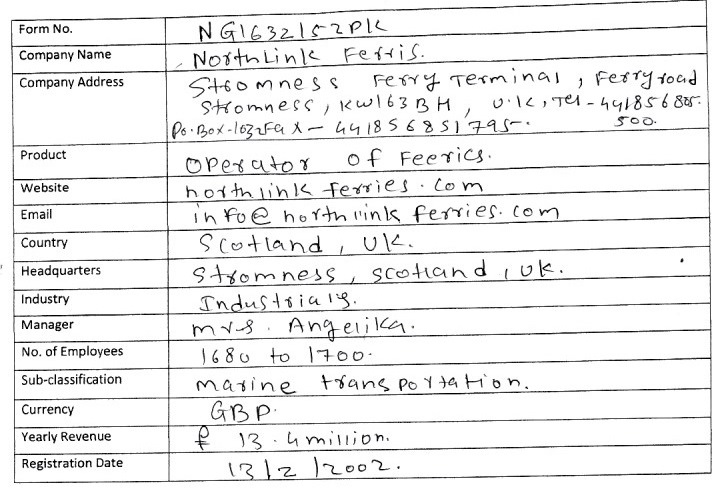 Form No. NG1632152PK
Company Name Northlink Ferris.
Company Address Stromness Ferry Terminal, Ferry road
Stromness, KW163BH, U.K, Tel - 441856885-
Po.Box-1032Fax - 441856851795-. 500.
Product Operator of Feerics.
Website northlink ferries.com
Email info@northlink ferries.com
Country Scotland, UK.
Headquarters Stromness, scotland, UK.
Industry Industrials.
Manager mrs. Angelika.
No. of Employees 1680 to 1700.
Sub-classification marine transportation.
Currency GBP.
Yearly Revenue £ 13.4million.
Registration Date 13/2/2002.